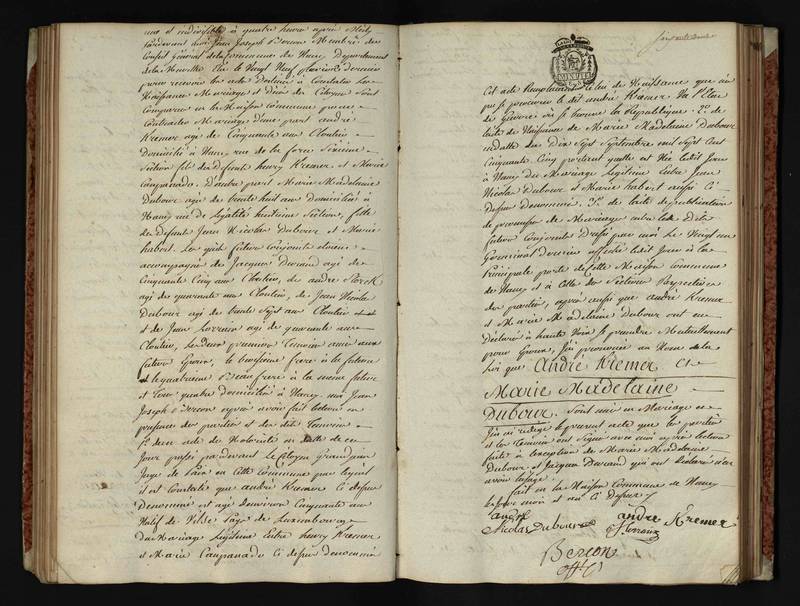 une et indivisible à quatre heure après Midy
pardevant moi Jean Joseph Bercon Membre du
Conseil Général de la Commune de Nancy Département
de la Meurthe Elu le Vingt Neuf
pour recevoir les actes destinés à Constater les
Naissances Mariage et Décès des Citoyens Sont
Comparus en la Maison Commune pour
Contracter Mariage d'une part andré
Kremer agé de Cinquante ans Cloutier
Domicilié à Nancy rue de la force Sixième
Section fils des Defunts henry Kremer et Marie
Campanado. D'autre part Marie Madelaine
Dubour agée de trente huit ans domiciliée à
Nancy rue de l'égalité huitième Section, fille
des Defunts Jean Nicolas Dubour et Marie
habert. Les quels futurs Conjoints étoient
accompagnés de Jacques Durand agé de
Cinquante Cinq ans Cloutier, de andré Storck
agé de quarante ans Cloutier, de Jean Nicolas
Dubour agé de trente Sept ans Cloutier
et de Jean Lorrain agé de quarante ans
Cloutier, les deux premiers Temoins amis aux
futurs Epoux, le troisieme frere à la future
et le quatrieme Beau frere à la meme future
et tous quatre domiciliés à Nancy. moi Jean
Joseph Bercon après avoir fait lecture en
presence des parties et des dits Temoins
1.° d'un acte de Notoriété en datte de ce
Jour passé pardevant le Citoyen Grandjean
Juge de Paix en Cette Commune par lequel
il est Constaté que andré Kremer Ci dessus
Denommé est agé d'environ Cinquante ans
Natif de Pays de Luxembourg
du Mariage Legitime Entre henry Kremer
et Marie Campanado Ci dessus denommée
Cet acte Remplacant celui de Naissance que n'a
pu se procurer le dit andré Kremer Vu l'Etat
de Guerre où se trouve la Republique. 2.° de
l'acte de Naissance de Marie Madelaine Dubour
en datte du Dix Sept Septembre mil Sept Cent
Cinquante Cinq portant qu'elle est Née ledit Jour
à Nancy du Mariage Legitime Entre Jean
Nicolas Dubour et Marie habert aussi Ci
dessus Denommés. 3.° de l'acte de publication
de promesse de Mariage entre les dits
futurs Conjoints Dressé par moi le Vingt un
Germinal Dernier affiché ledit Jour à la
Principale porte de Cette Maison Commune
de Nancy et à Celle des Sections Respectives
des parties, après aussi que andré Kremer
et Marie Madelaine Dubour ont eu
Déclaré à haute Voix se prendre Mutuellement
pour Epoux, J'ai prononcé au Nom de la
Loi que André Kremer Et
Marie Madelaine
Dubour. Sont unis en Mariage et
J'ai rédigé le present acte que les parties
et les Temoins ont Signé avec moi après lecture
faite à l'exception de Marie Madelaine
Dubour et Jacques Durand qui ont Déclaré n'en
avoir l'usage.
fait en la Maison Commune de Nancy
les Jour mois et an Ci dessus
andré Kremer
Nicolas Dubour
J Lorrain
Bercon